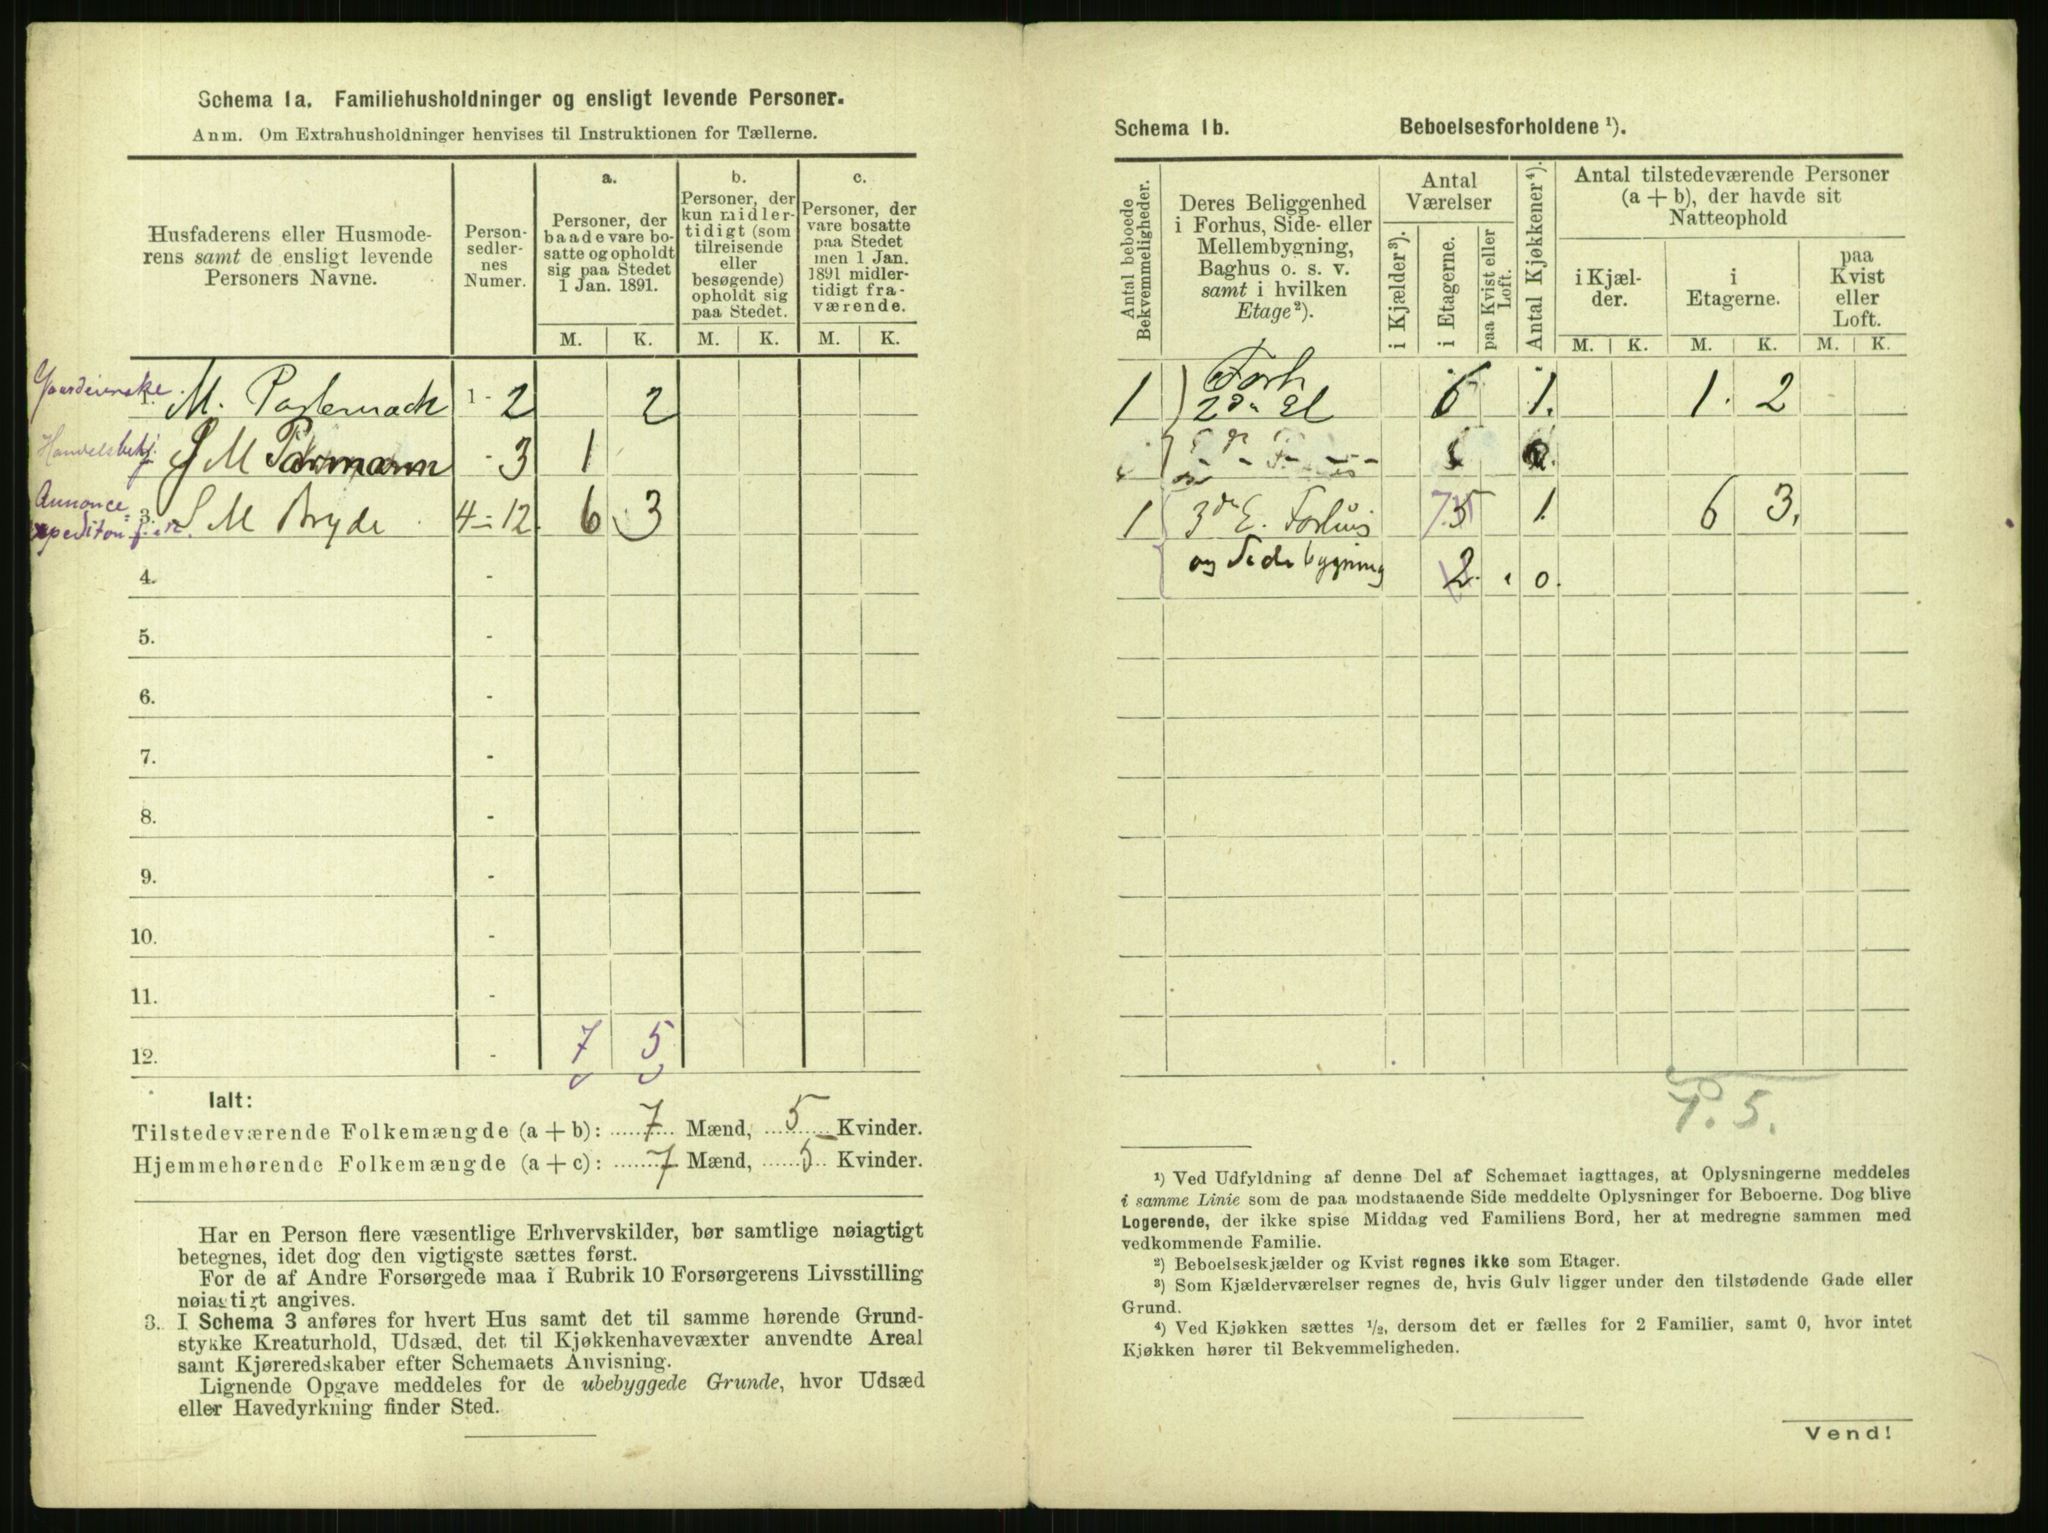 Schema 1a. Familiehusholdninger og ensligt levende Personer.
Anm. Om Extrahusholdninger henvises til Instruktionen for Tællerne.
Husfaderens eller Husmode-
rens samt de ensligt levende
Personers Navne.
Person-
sedler-
nes
Numer.
a.
Personer, der
baade vare bo-
satte og opholdt
sig paa Stedet
1 Jan. 1891.
b.
Personer, der
kun midler-
tidigt (som
tilreisende
eller
besøgende)
opholdt sig
paa Stedet.
c.
Personer, der
vare bosatte
paa Stedet
men 1 Jan.
1891 midler-
tidigt fra-
værende.
M. K. M. K. M. K.
1. M. Pasternack 1 - 2 2
Handelsbetj. M - 3 1
Annonce=
3. S M Bryde 4 - 12. 6 3
4. -
5. -
6. -
7. -
8. -
9. -
10. -
11. -
12. - 7 5
Ialt:
Tilstedeværende Folkemængde (a + b): 7 Mænd, 5 Kvinder.
Hjemmehørende Folkemængde (a + c): 7 Mænd, 5 Kvinder.
Har en Person flere væsentlige Erhvervskilder, bør samtlige nøiagtigt
betegnes, idet dog den vigtigste sættes først.
For de af Andre Forsørgede maa i Rubrik 10 Forsørgerens Livsstilling
nøiagtigt angives.
3. I Schema 3 anføres for hvert Hus samt det til samme hørende Grund-
stykke Kreaturhold, Udsæd, det til Kjøkkenhavevæxter anvendte Areal
samt Kjøreredskaber efter Schemaets Anvisning.
Lignende Opgave meddeles for de ubebyggede Grunde, hvor Udsæd
eller Havedyrkning finder Sted.
Schema 1b. Beboelsesforholdene ¹).
Antal beboede
Bekvemmeligheder.
Deres Beliggenhed
i Forhus, Side- eller
Mellembygning,
Baghus o. s. v.
samt i hvilken
Etage²).
Antal
Værelser
i Kjælder³).
i Etagerne.
paa Kvist eller
Loft.
Antal Kjøkkener⁴).
Antal tilstedeværende Personer
(a + b), der havde sit
Natteophold
i Kjæl-
der.
i
Etagerne.
paa
Kvist
eller
Loft.
M. K. M. K. M. K.
1 Forh 6 1. 1. 2
2den Et
1 3de E. Forhuis 7 5 1. 6 3.
og Sidebygning 2. 0.
P. 5.
¹) Ved Udfyldning af denne Del af Schemaet iagttages, at Oplysningerne meddeles
i samme Linie som de paa modstaaende Side meddelte Oplysninger for Beboerne. Dog blive
Logerende, der ikke spise Middag ved Familiens Bord, her at medregne sammen med
vedkommende Familie.
²) Beboelseskjælder og Kvist regnes ikke som Etager.
³) Som Kjælderværelser regnes de, hvis Gulv ligger under den tilstødende Gade eller
Grund.
⁴) Ved Kjøkken sættes ¹/₂, dersom det er fælles for 2 Familier, samt 0, hvor intet
Kjøkken hører til Bekvemmeligheden.
Vend!